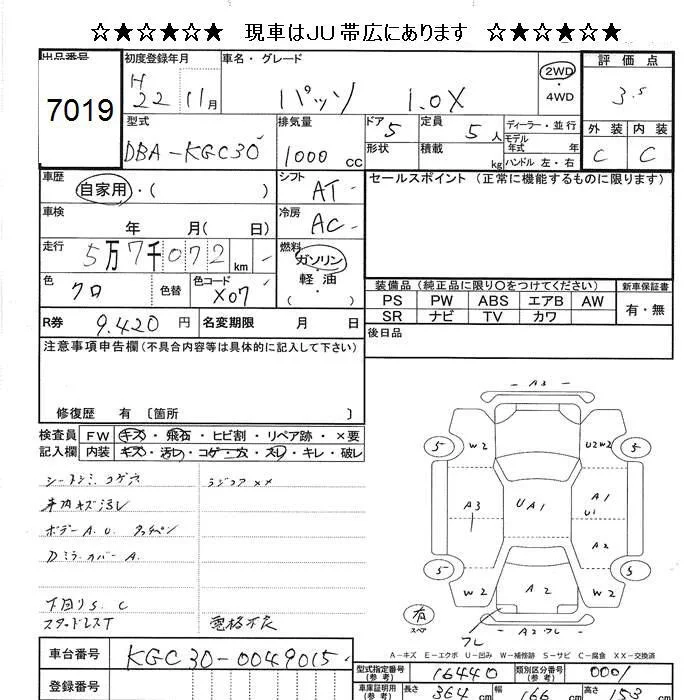 ☆★☆★☆★ 現車はJU帯広にあります ☆★☆★☆★
出品番号 初度登録年月 車名・グレード 評価点
7019 H22 11月 パッソ 1.0X 2WD・4WD 3.5
型式 排気量 ドア 5 定員 5人 ディーラー・並行 外装 内装
DBA-KGC30 1000cc 形状 積載 kg モデル年式 年 ハンドル 左・右 C C
車歴 自家用・( ) シフト AT セールスポイント(正常に機能するものに限ります)
車検 年 月( 日) 冷房 AC
走行 5万7千072km 燃料 ガソリン・軽・油 ( )
色 クロ 色替 色コード X07 装備品(純正品に限り○をつけてください) 新車保証書
PS PW ABS エアB AW 有・無
SR ナビ TV カワ
R券 9.420円 名変期限 月 日 後日品
注意事項申告欄(不具合内容等は具体的に記入して下さい)
修復歴 有 〔箇所 〕
検査員記入欄 FW キズ・飛石・ヒビ割・リペア跡・×要
内装 キズ・汚レ・コゲ・穴・スレ・キレ・破レ
シートシミ コゲ穴 ラジコア××
内キズ汚レ
ボデーA.U. タッチペン
DミラーカバーA.
下回りS.C
スタッドレスT 電格不良
A3
5 W2 U2W2 5
A3 UA1 A1
U1
A2
5 W2 A2 W2 5
有 スペア フレ A2.フレ
A-キズ E-エクボ U-凹み W-補修跡 S-サビ C-腐食 XX-交換済
車台番号 KGC30-0049015 型式指定番号(参考) 16440 類別区分番号(参考) 0001
登録番号 車庫証明用(参考) 長さ 364cm 幅 166cm 高さ 153cm